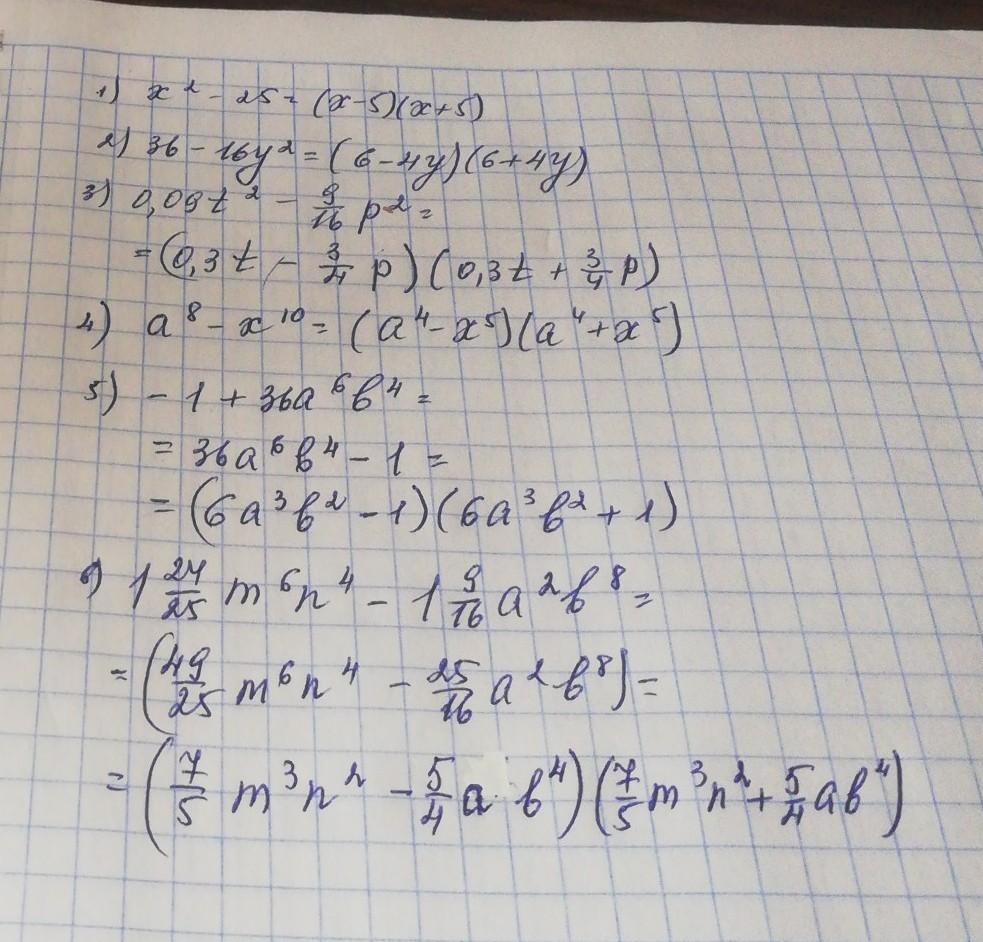 1) x² - 25 = (x-5)(x+5)
2) 36 - 16y² = (6-4y)(6+4y)
3) 0,09t² - 9/16 p² =
= (0,3t - 3/4 p)(0,3t + 3/4 p)
4) a⁸ - x¹⁰ = (a⁴ - x⁵)(a⁴ + x⁵)
5) -1 + 36a⁶b⁴ =
= 36a⁶b⁴ - 1 =
= (6a³b² - 1)(6a³b² + 1)
6) 1 24/25 m⁶n⁴ - 1 9/16 a²b⁸ =
= (49/25 m⁶n⁴ - 25/16 a²b⁸) =
= (7/5 m³n² - 5/4 a b⁴)(7/5 m³n² + 5/4 ab⁴)